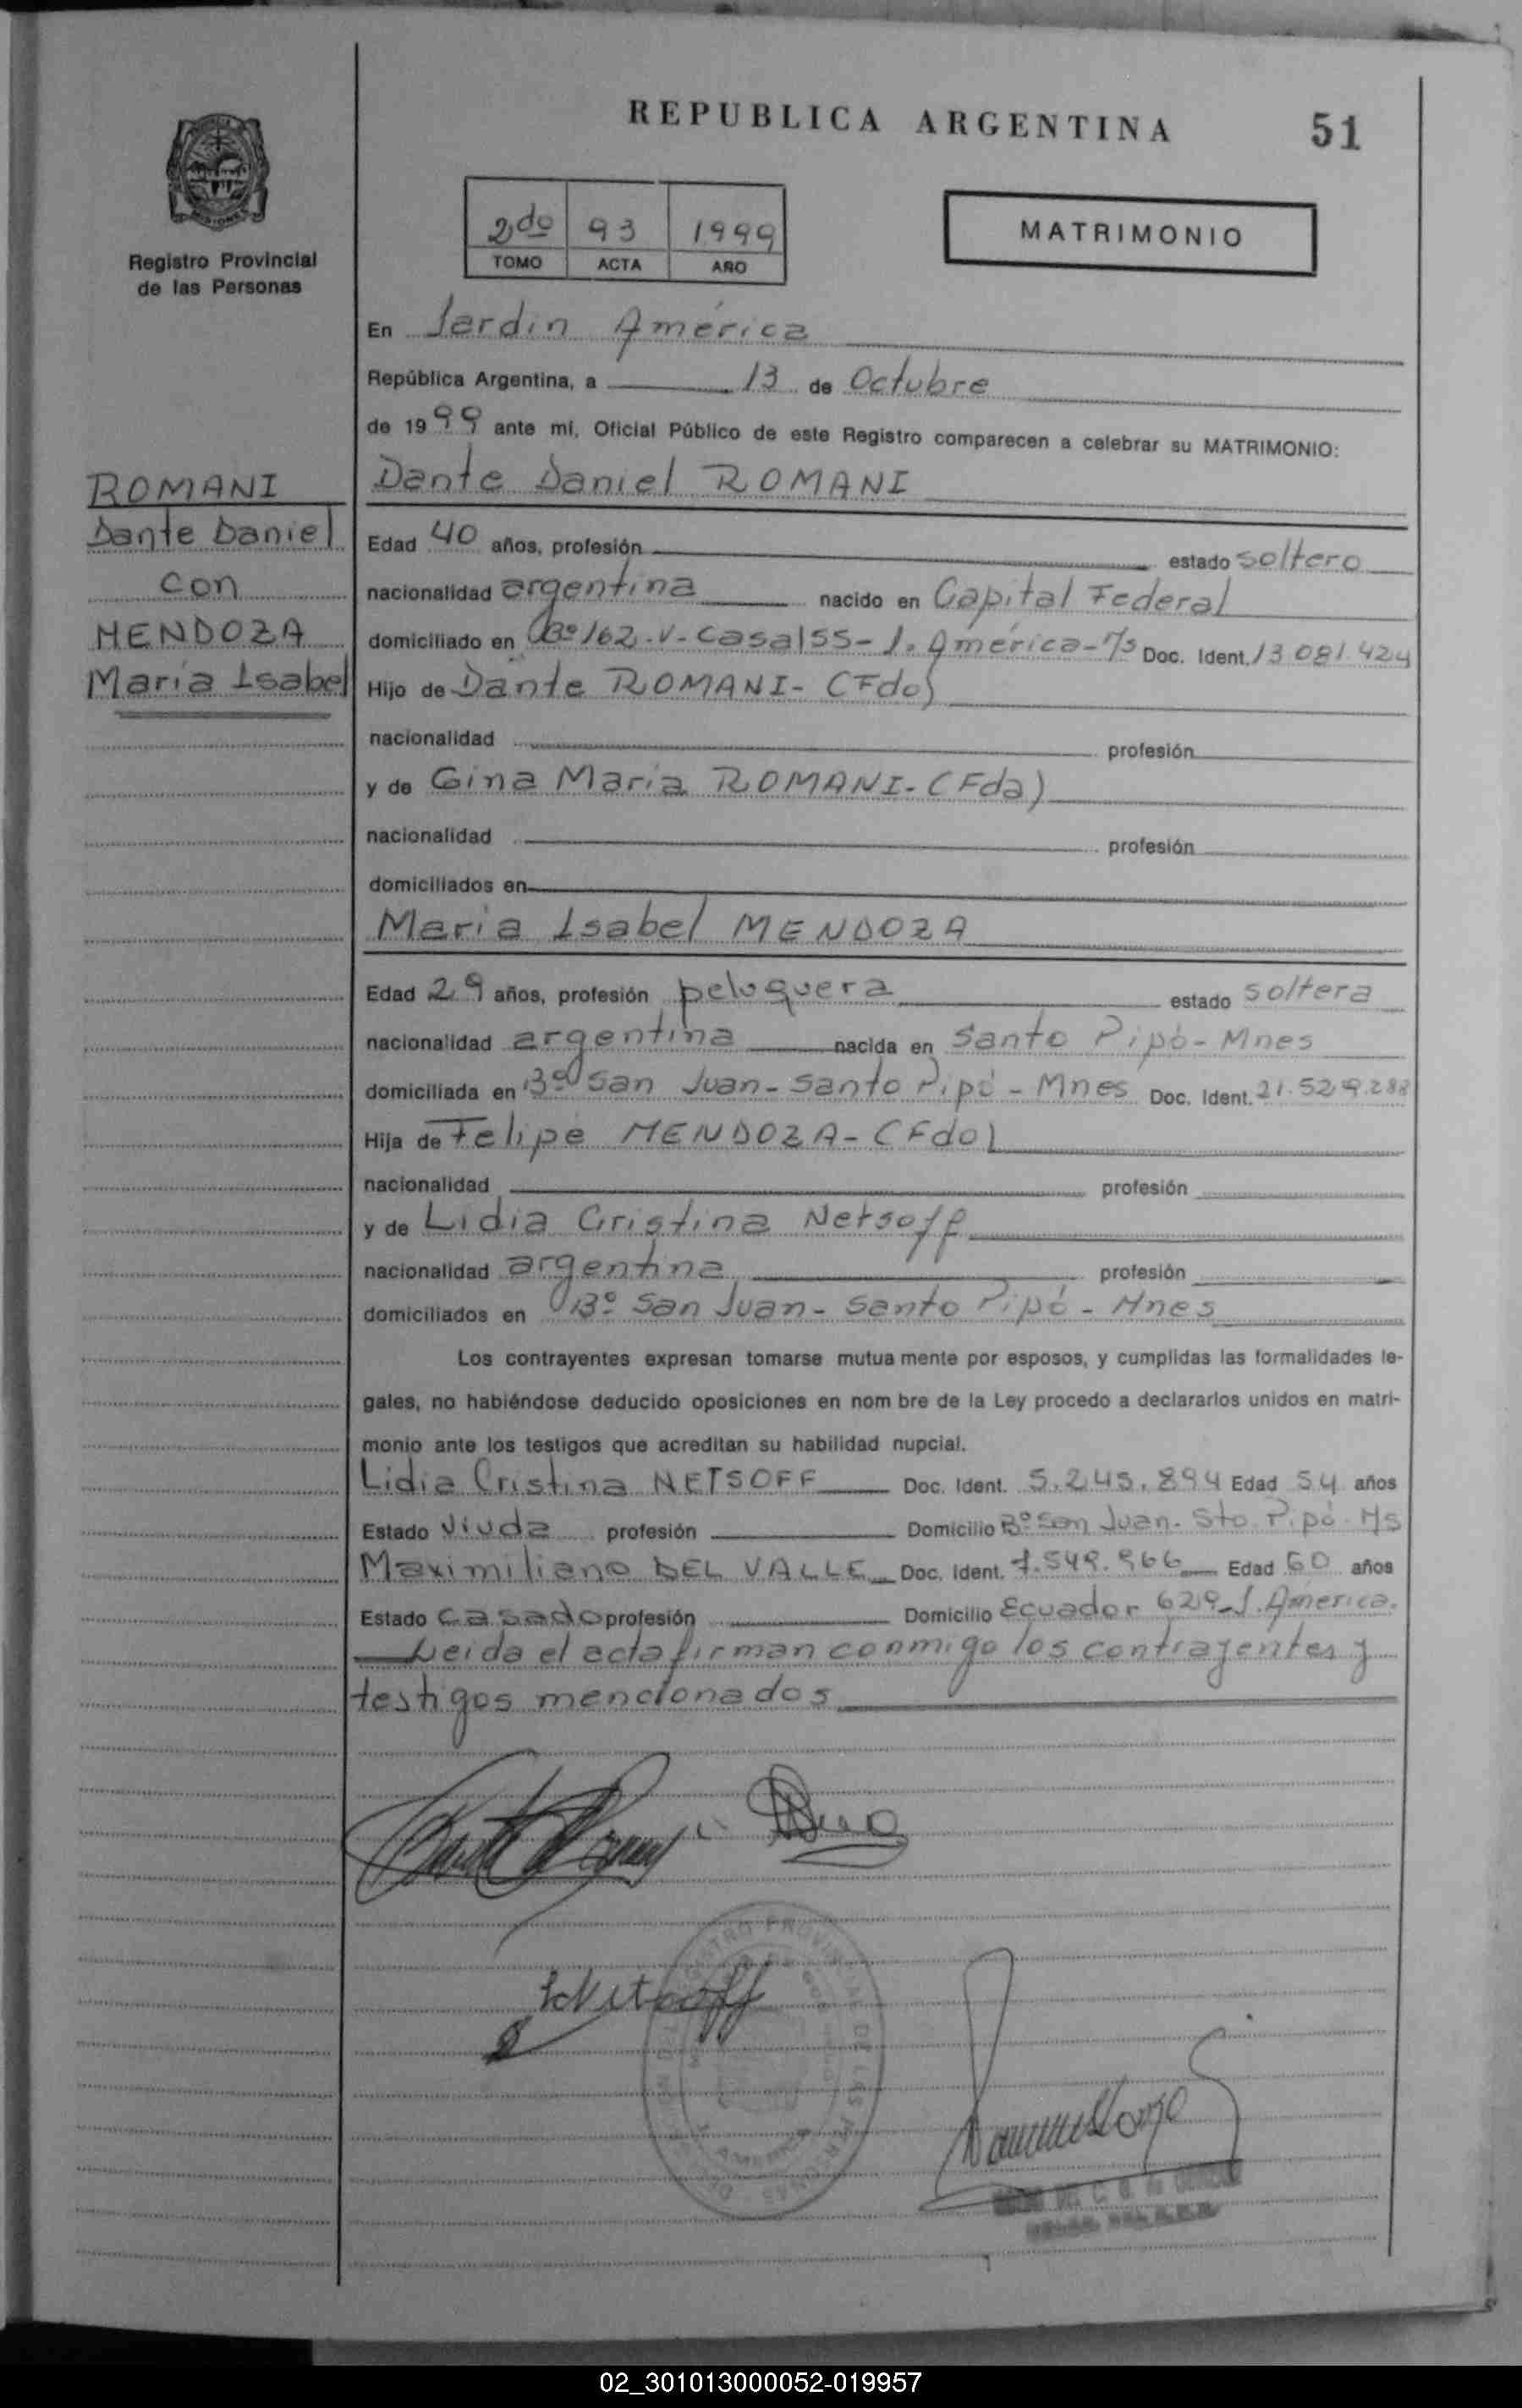 REPUBLICA ARGENTINA
51
Registro Provincial
de las Personas
2do 93 1999
TOMO ACTA AÑO
MATRIMONIO
En Jardin América
República Argentina, a 13 de Octubre
de 1999 ante mí, Oficial Público de este Registro comparecen a celebrar su MATRIMONIO:
ROMANI
Dante Daniel
con
MENDOZA
María Isabel
Dante Daniel ROMANI
Edad 40 años, profesión estado soltero
nacionalidad argentina nacido en Capital Federal
domiciliado en Bº 162-V-Casa 155-J. América-M/s Doc. Ident. 13.081.424
Hijo de Dante ROMANI- (Fdo)
nacionalidad profesión
y de Gina María ROMANI-(Fda)
nacionalidad profesión
domiciliados en
María Isabel MENDOZA
Edad 29 años, profesión peluquera estado soltera
nacionalidad argentina nacida en Santo Pipó-Mnes
domiciliada en Bº San Juan-Santo Pipó-Mnes Doc. Ident. 21.529.288
Hija de Felipe MENDOZA-(Fdo)
nacionalidad profesión
y de Lidia Cristina Netsoff
nacionalidad argentina profesión
domiciliados en Bº San Juan-Santo Pipó-Mnes
Los contrayentes expresan tomarse mutua mente por esposos, y cumplidas las formalidades le-
gales, no habiéndose deducido oposiciones en nom bre de la Ley procedo a declararlos unidos en matri-
monio ante los testigos que acreditan su habilidad nupcial.
Lidia Cristina NETSOFF Doc. Ident. 5.245.894 Edad 54 años
Estado Viuda profesión Domicilio Bº San Juan-Sto. Pipó-M/s
Maximiliano DEL VALLE Doc. Ident. 7.549.966 Edad 60 años
Estado Casado profesión Domicilio Ecuador 629-J. América.
Leida el acta firman conmigo los contrayentes y
testigos mencionados
02_301013000052-019957